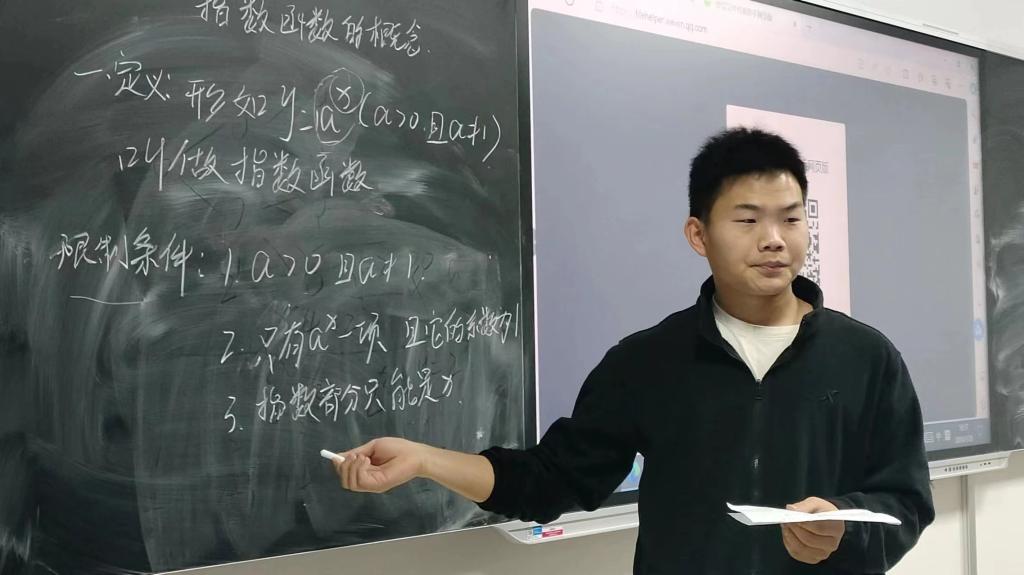 指数函数的概念.
一.定义: 形如 y=aˣ (a>0.且a≠1)
叫做指数函数
限制条件: 1. a>0 且a≠1.
2. 只有aˣ一项 且它的系数为1
3. 指数部分只能是x.
filehelper.weixin.qq.com
网页版